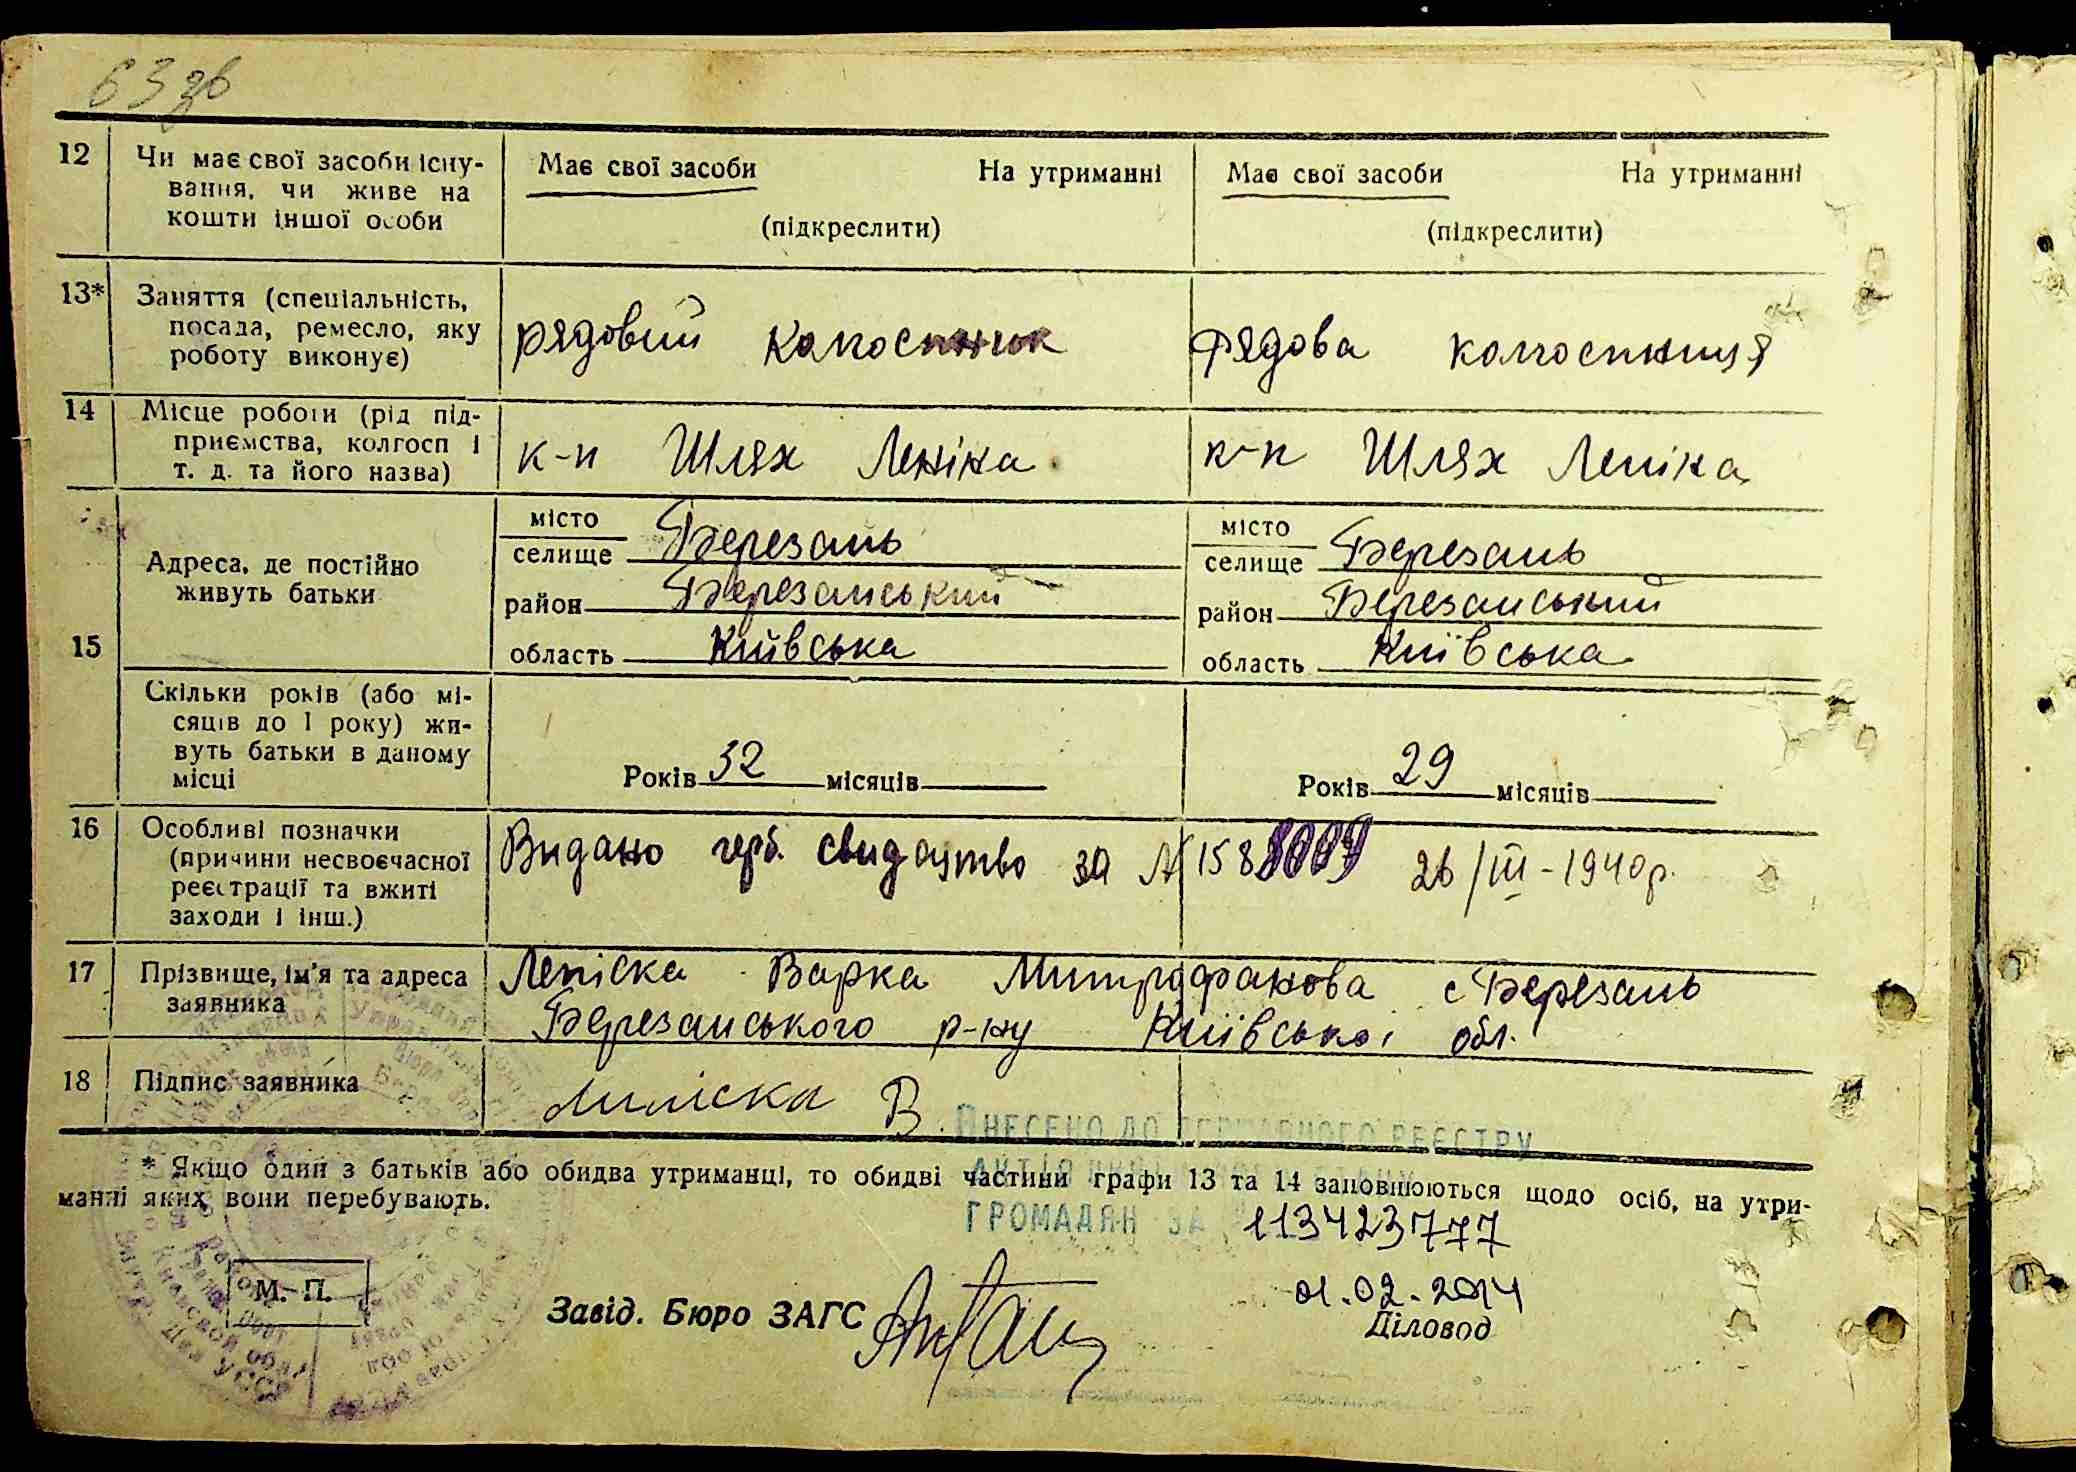 63 зв
12 Чи має свої засоби існу- Має свої засоби На утриманні Має свої засоби На утриманні
вання, чи живе на
кошти іншої особи (підкреслити) (підкреслити)
13* Заняття (спеціальність,
посада, ремесло, яку рядовий колгоспник рядова колгоспниця
роботу виконує)
14 Місце роботи (рід під-
приємства, колгосп і к-п Шлях Леніна к-п Шлях Леніна
т. д. та його назва)
15 Адреса, де постійно
живуть батьки
місто
селище Березань
район Березанський
область Київська
місто
селище Березань
район Березанський
область Київська
Скільки років (або мі-
сяців до 1 року) жи-
вуть батьки в даному
місці
Років 32 місяців Років 29 місяців
16 Особливі позначки Видано герб. свидоцтво за № 158 8009 26/III-1940р.
(причини несвоєчасної
реєстрації та вжиті
заходи і інш.)
17 Прізвище, ім'я та адреса Лепіска Варка Митрофанова с Березань
заявника Березанського р-ну Київської обл.
18 Підпис заявника В.
ВНЕСЕНО ДО ДЕРЖАВНОГО РЕЄСТРУ
* Якщо один з батьків або обидва утриманці, то обидві частини графи 13 та 14 заповнюються щодо осіб, на утри-
манні яких вони перебувають.
ГРОМАДЯН ЗА 113423777
01.02.2014
М. П.
Завід. Бюро ЗАГС Діловод